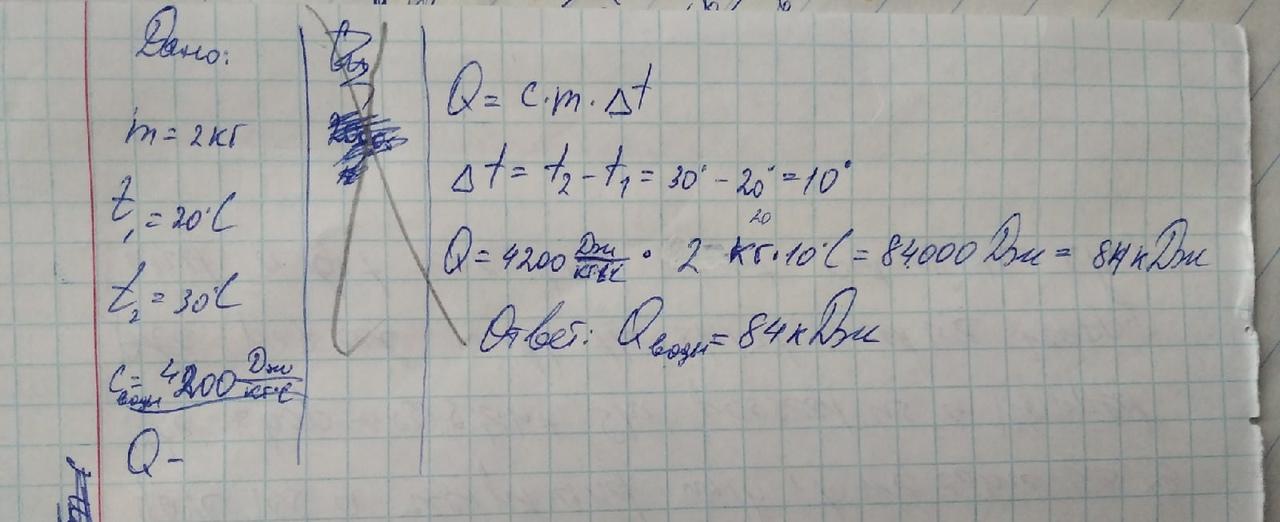 Дано:
m = 2 кг
t₁ = 20°C
t₂ = 30°C
Cводы = 4200 Дж/кг·°C
Q -
Q = c·m·Δt
Δt = t₂ - t₁ = 30° - 20° = 10°
20
Q = 4200 Дж/кг·°C · 2 кг·10°C = 84000 Дж = 84 кДж
Ответ: Qводы = 84 кДж